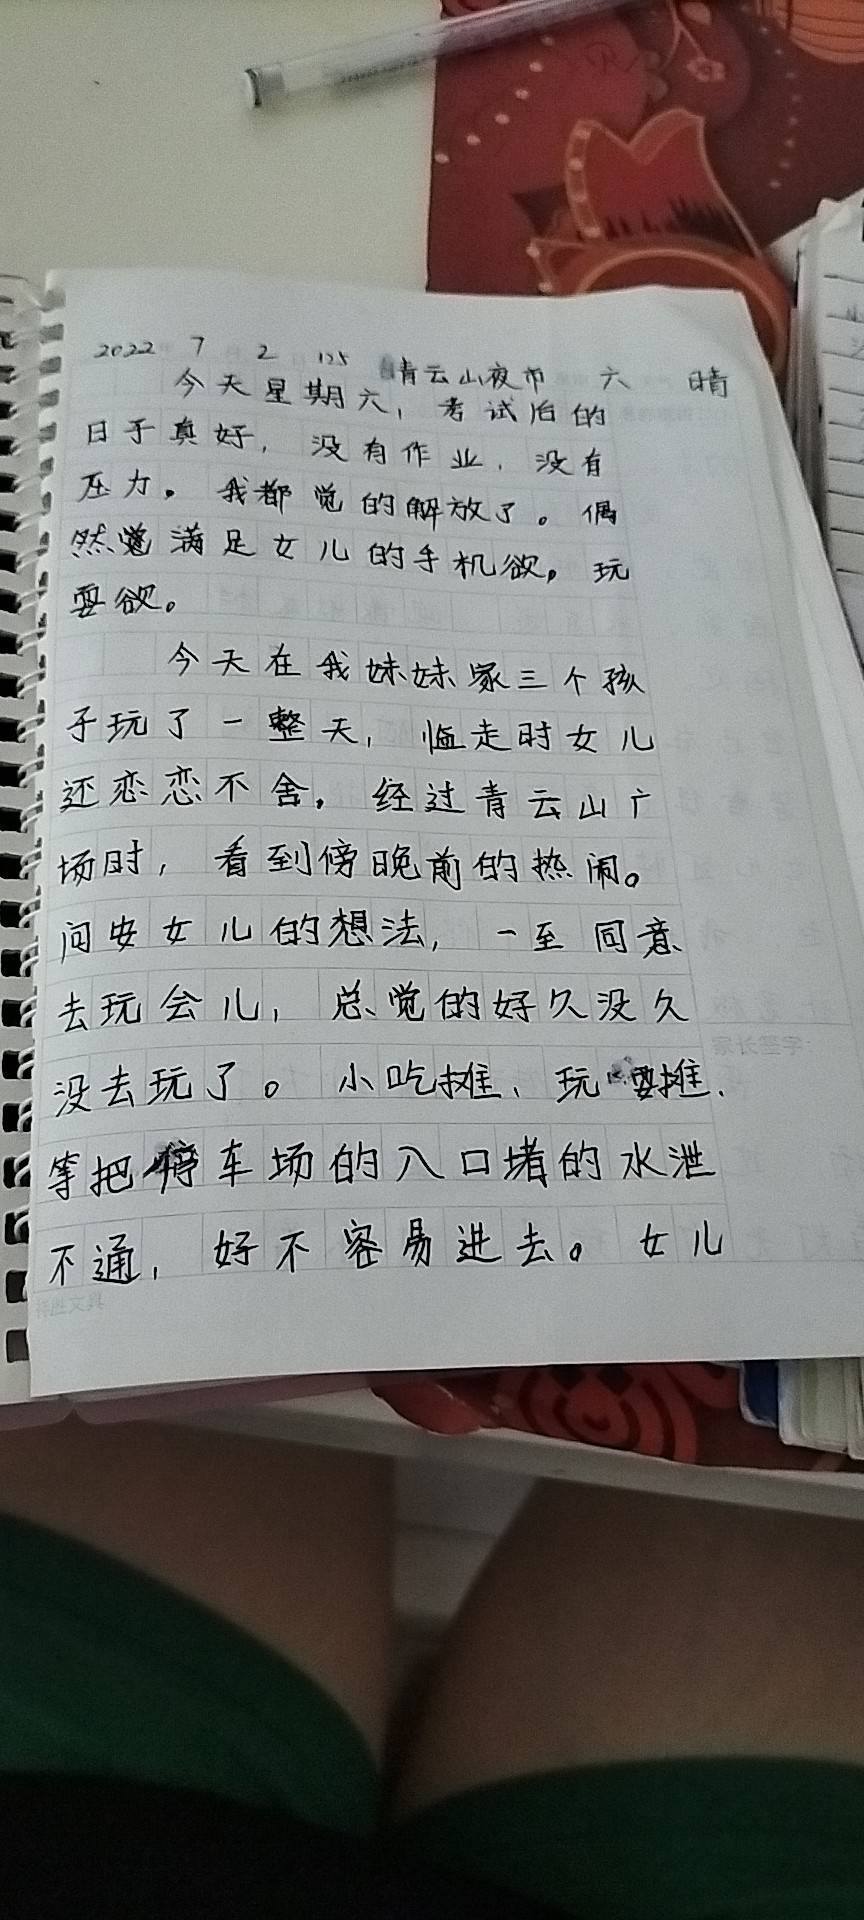 2022 7 2 125 青云山夜市 六 晴
今天星期六，考试后的
日子真好，没有作业，没有
压力。我都觉的解放了。偶
然满足女儿的手机欲。玩
耍欲。
今天在我妹妹家三个孩
子玩了一整天，临走时女儿
还恋恋不舍。经过青云山广
场时，看到傍晚前的热闹。
问安女儿的想法，一至同意
去玩会儿，总觉的好久没久
没去玩了。小吃摊、玩耍摊、
等把停车场的入口堵的水泄
不通，好不容易进去。女儿
家长签字：